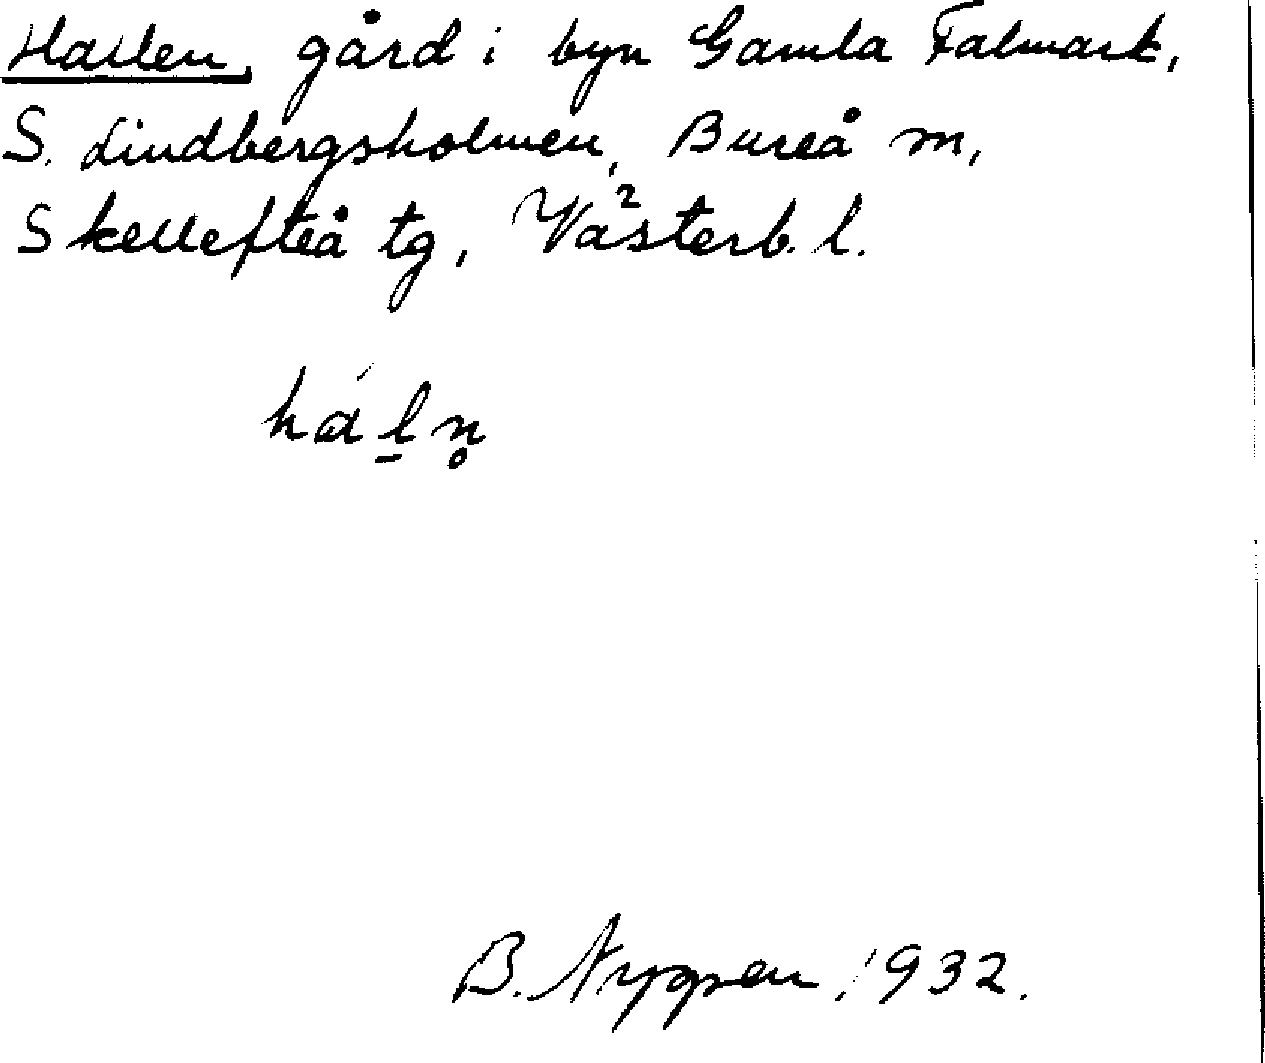 Hallen, gård i byn Gamla Falmark,
S. Lindbergsholmen, Bureå m,
Skellefteå tg, Västerb. l.
hál̠n̥
B. Nygren 1932.